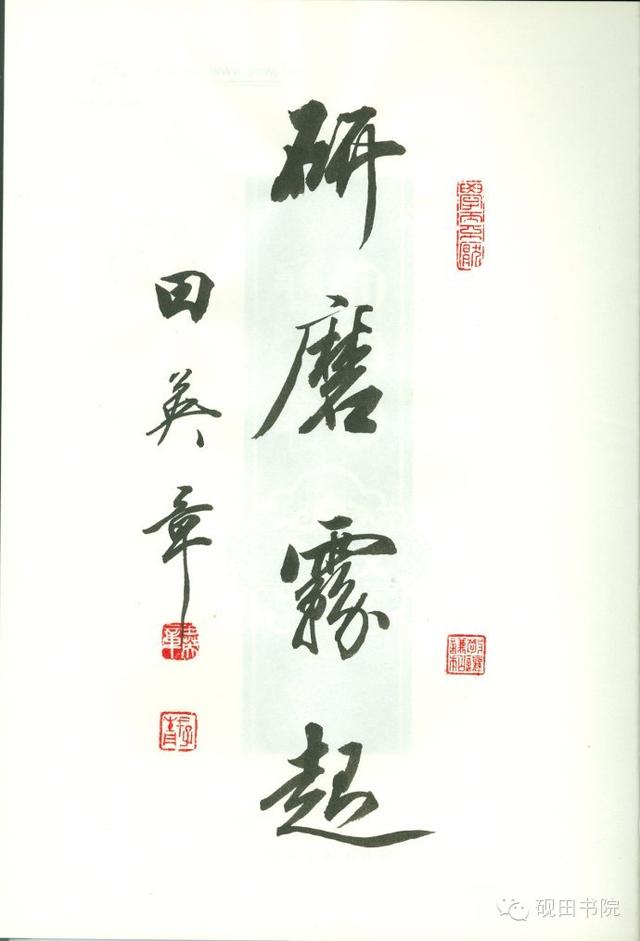 研磨霧起
田英章
砚田书院